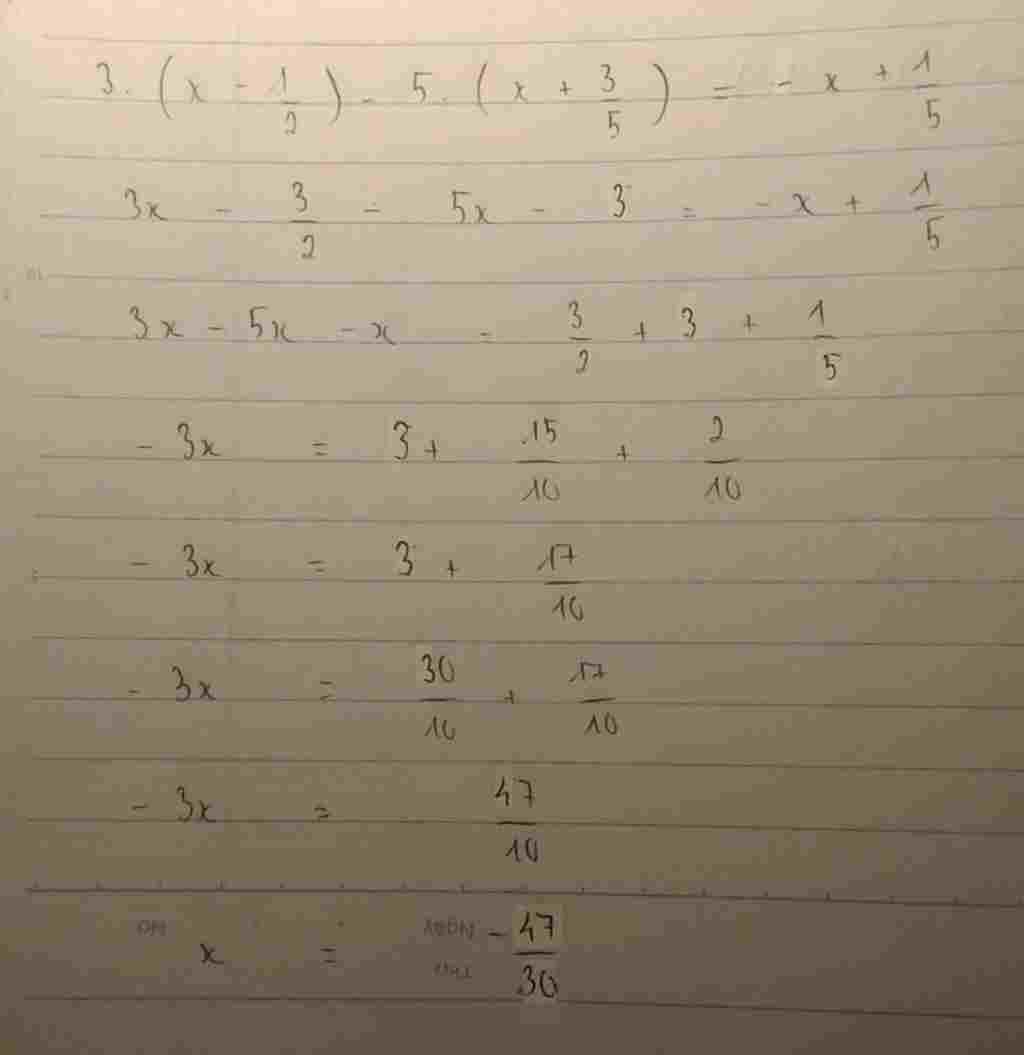 3. (x - 1/2) - 5. (x + 3/5) = - x + 1/5
3x - 3/2 - 5x - 3 = - x + 1/5
3x - 5x - x = 3/2 + 3 + 1/5
- 3x = 3 + 15/10 + 2/10
- 3x = 3 + 17/10
- 3x = 30/10 + 17/10
- 3x = 47/10
x = - 47/30